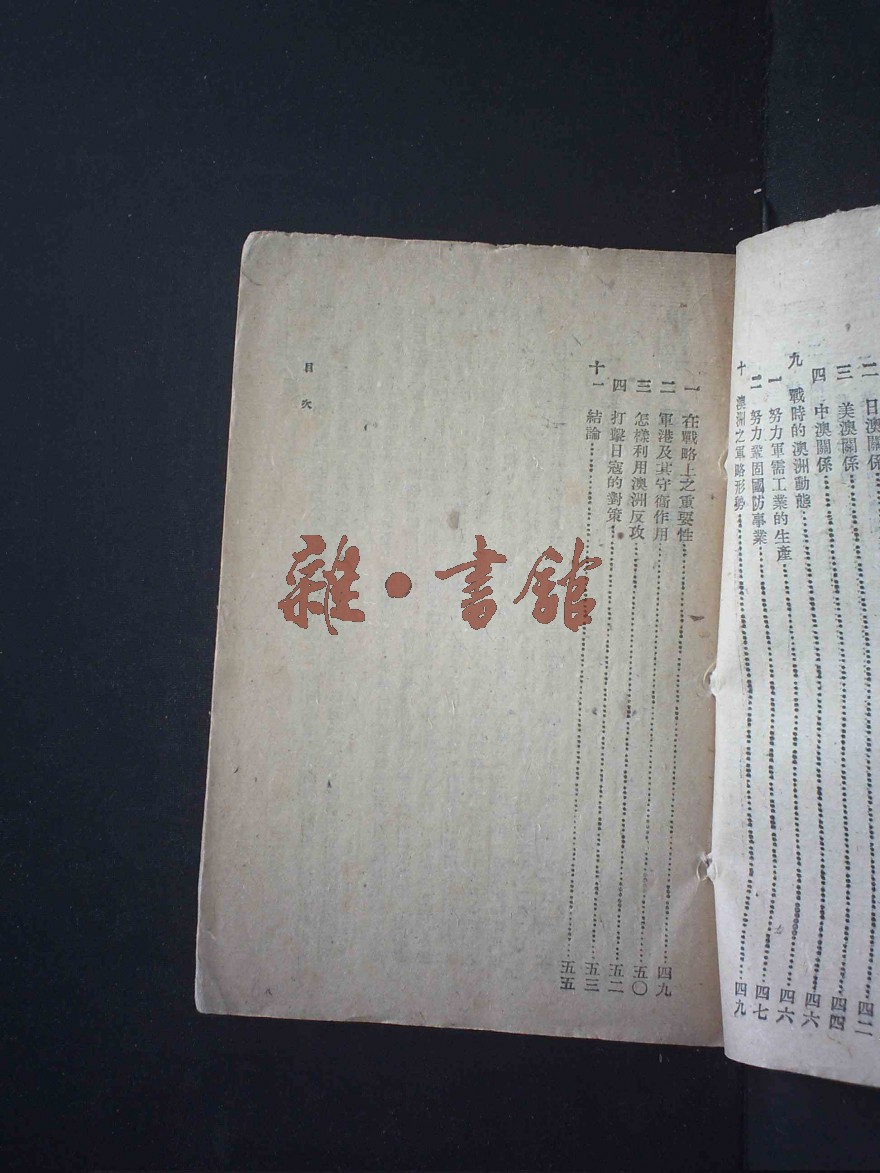 二 日澳關係……四二
三 美澳關係……四四
四 中澳關係……四六
九 戰時的澳洲動態……四六
一 努力軍需工業的生產……四七
二 努力鞏固國防事業……四九
十 澳洲之軍略形勢……
一 在戰略上之重要性……四九
二 軍港及其守衛作用……五〇
三 怎樣利用澳洲反攻……五二
四 打擊日寇的對策……五三
十一 結論……五五
目次
雜·書館